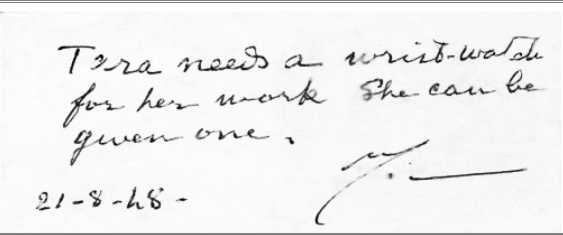 Tara needs a wrist-watch
for her work She can be
given one.
21-8-48-